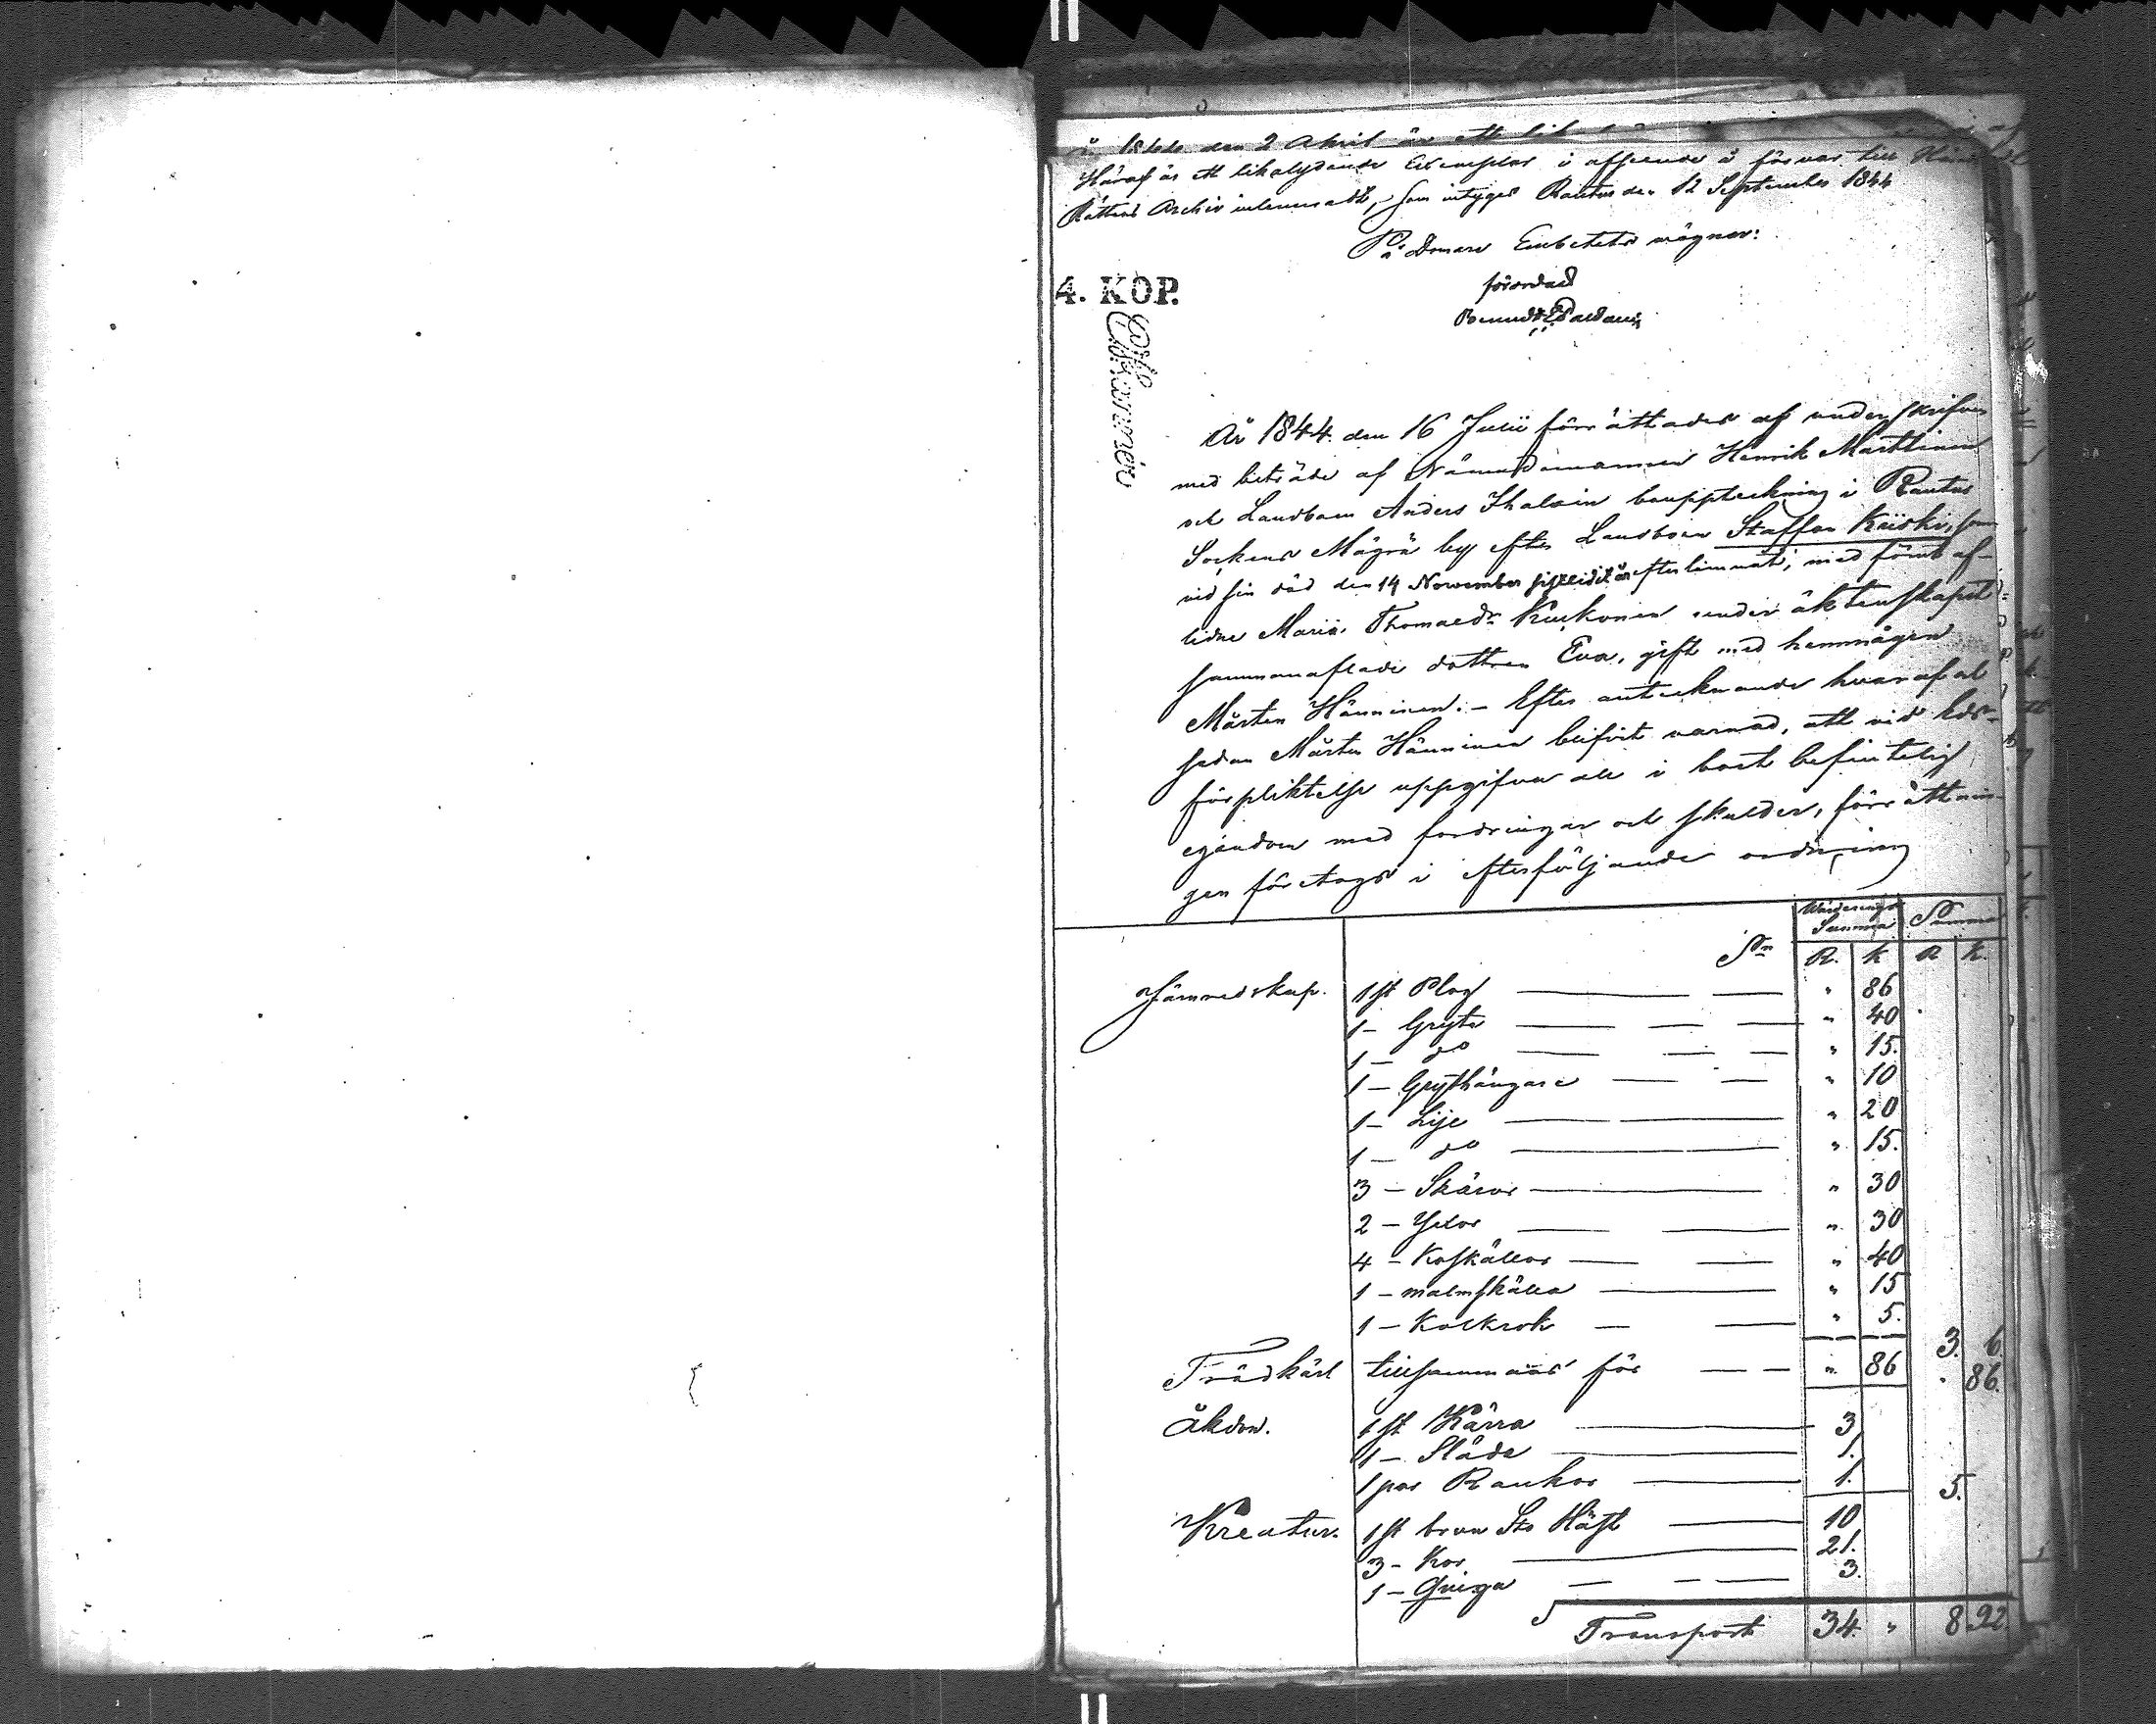 År 1844 den 2 April är ett
Häraf är ett likalydande Exemplar i afseende å förvar till Härads
Rättens Archiv inlemnadt, som intygas Rautus den 12 September 1844
På Domare Embetets vägnar:
förordnad
4. KOP.
År 1844. den 16 Julii förrättades af underskrifven
med biträde af Nämndemannen Henrik Marttinen
och Landboen Anders Ihalain bouppteckning i Rautus
Sockens Mägrä by efter Landboen Staffan Kiiski, som
vid sin död den 14 November sistledit år efterlemnat, med förut af-
lidne Maria Thomaedr Kuckonen under äktenskapet
sammanaflade dottren Eva, gift med hemmågen
Mårten Hänninen. - Efter antecknande hvaraf och
sedan Mårten Hänninen blifvit varnad, att vid Eds-
förpliktelse uppgifva all i boet befintelig
egendom med fordringar och skulder, förrättnin-
gen företogs i efterföljande ordning
Värderings Summa Summa
Sr R. K R K.
Järnredskap. 1 st Plog — — " 86
1 - Gryta — — — " 40
1 - do — — — " 15.
1 - Grythängare — — " 10
1 - Lije — — " 20
1 - do — " 15.
3 - Skäror — " 30
2 - Yxor — — " 30
4 - Koskällor — — " 40
1 - malmskälla — " 15
1 - Kolkrok — — " 5. 3. 6.
Trädkärl tillsammans för — — " 86 " 86.
Åkdon. 1 st Kärra — 3
1 - Släde — 1.
1 par Rankor — 1. 5.
Kreatur. 1 st brun Sto Häst — 10
3 - Kor — 21.
1 - Qviga — — — 3.
Transport 34. " 8 92.